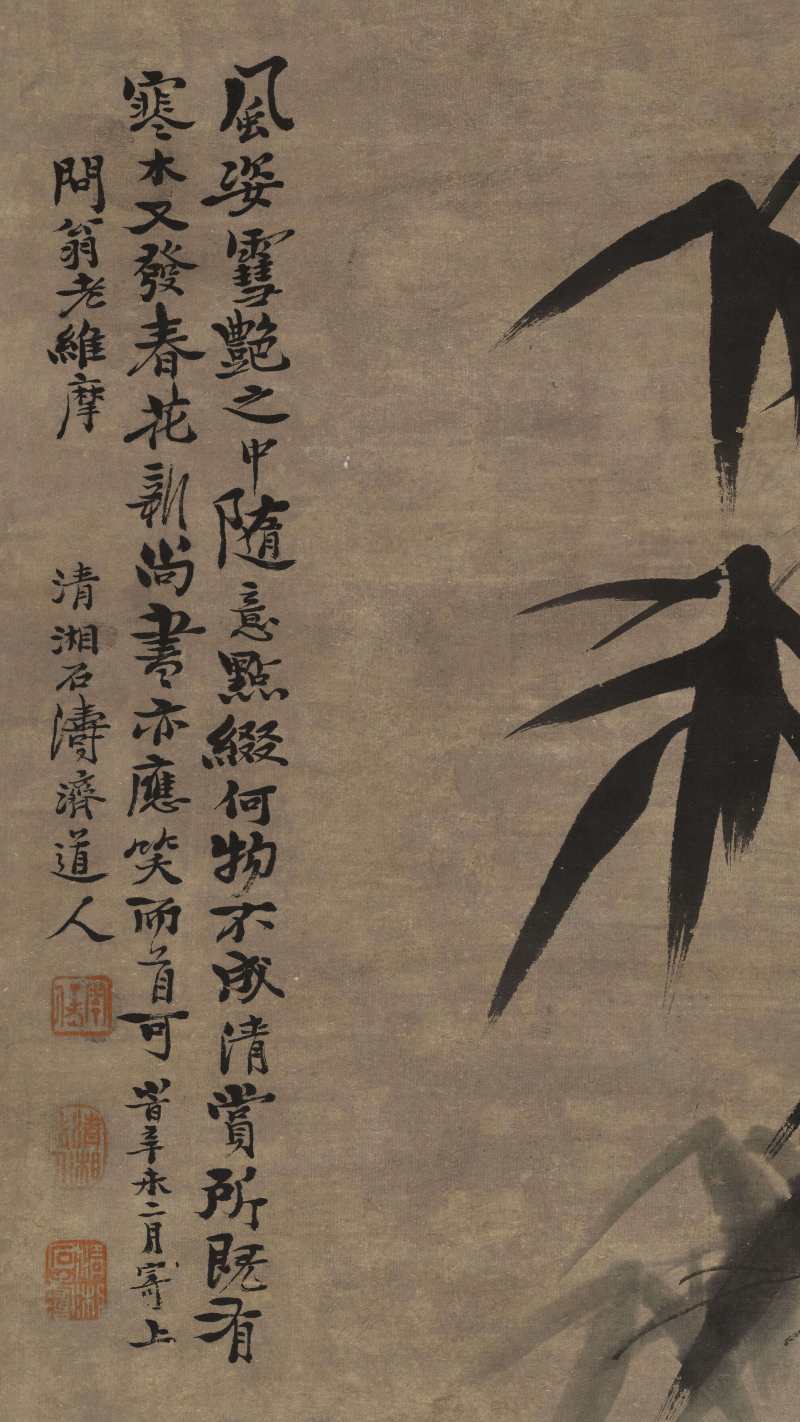 風姿雪艷之中隨意點綴何物不成清賞所既有
寒木又發春花新尚書亦應笑而首可 昔辛未二月寄上
問翁老維摩 清湘石濤濟道人
清湘